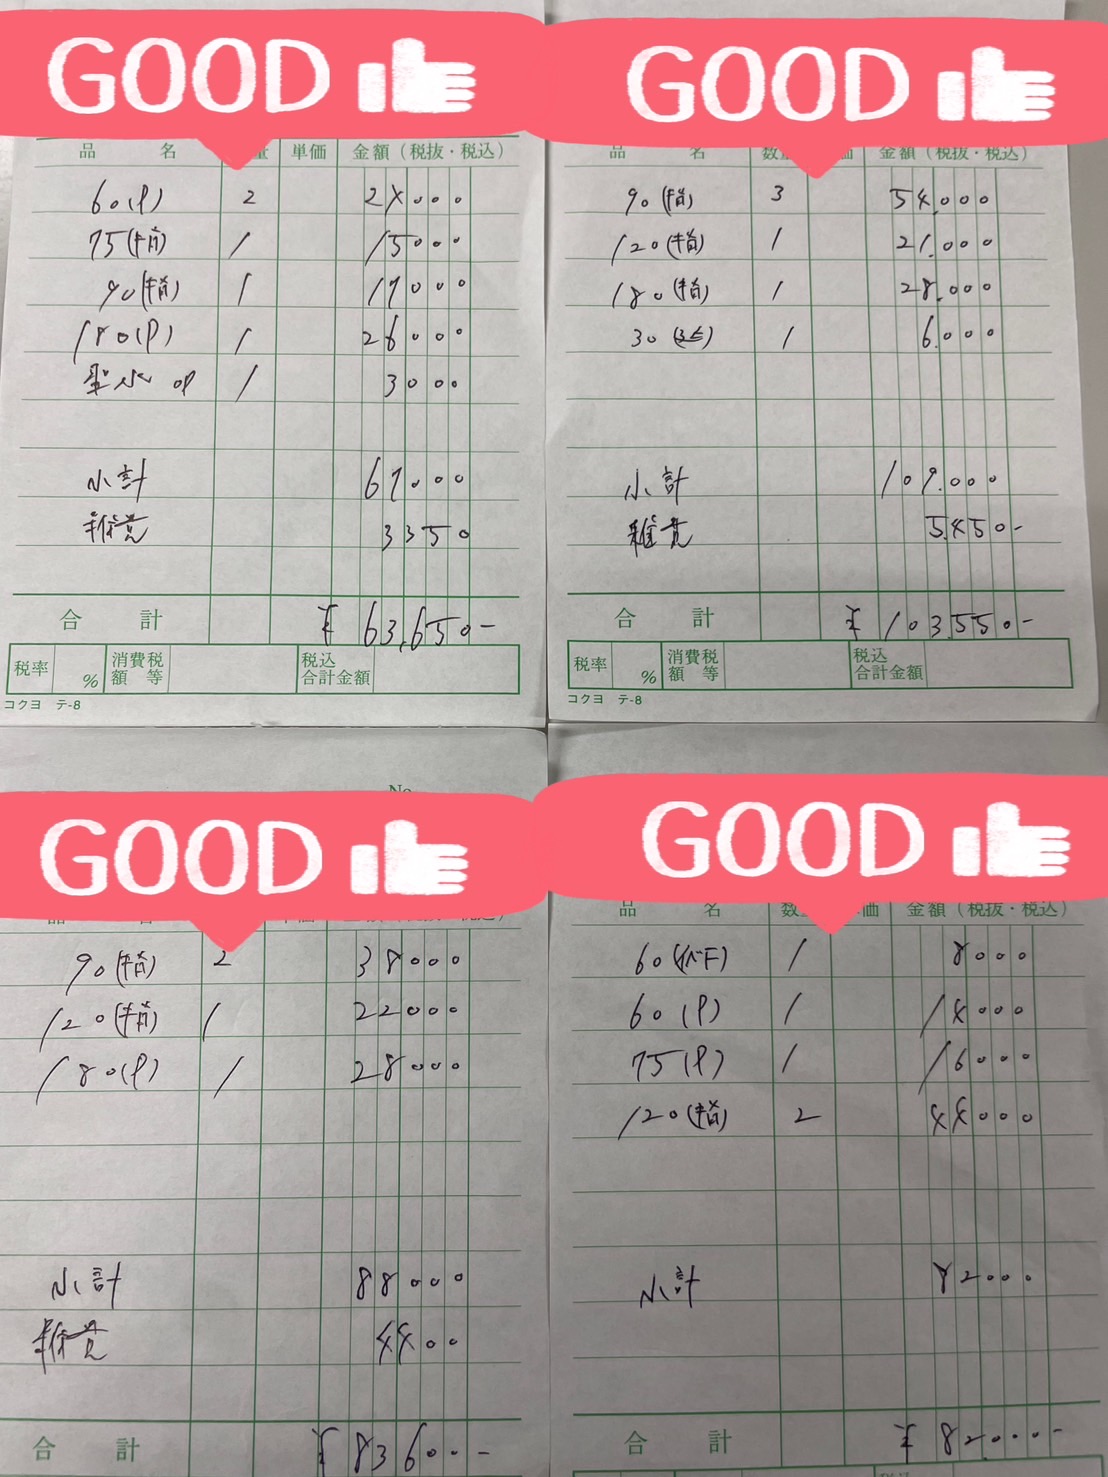 GOOD
品 名 量 単価 金額（税抜・税込）
60(P) 2 24000
75(指) 1 15000
90(指) 1 17000
180(P) 1 26000
聖水 OP 1 3000
小計 67000
雑費 3350
合計 ¥63,650-
税率 % 消費税額等 税込合計金額
コクヨ テ-8
GOOD
品 名 数量 価 金額（税抜・税込）
90(指) 3 54,000
120(指) 1 21,000
180(指) 1 28,000
30 1 6,000
小計 109,000
雑費 5,450-
合計 ¥103,550-
税率 % 消費税額等 税込合計金額
コクヨ テ-8
No
GOOD
90(指) 2 38000
120(指) 1 22000
180(P) 1 28000
小計 88000
雑費 4400
合計 ¥83600-
GOOD
品 名 数 価 金額（税抜・税込）
60(イベF) 1 8000
60(P) 1 14000
75(P) 1 16000
120(指) 2 44000
小計 82000
合計 ¥82000-